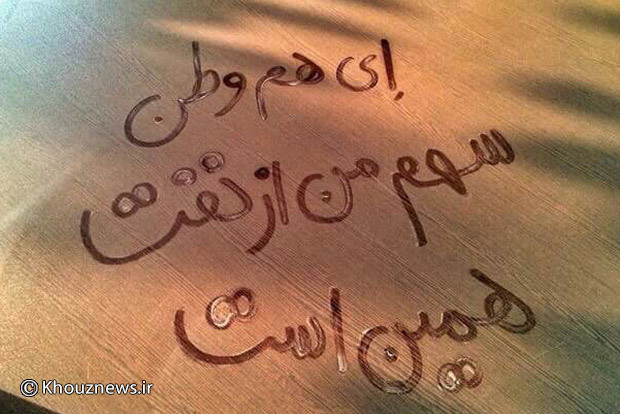 اِی هم وطن
سهم من از نفت
همین است
© Khouznews.ir